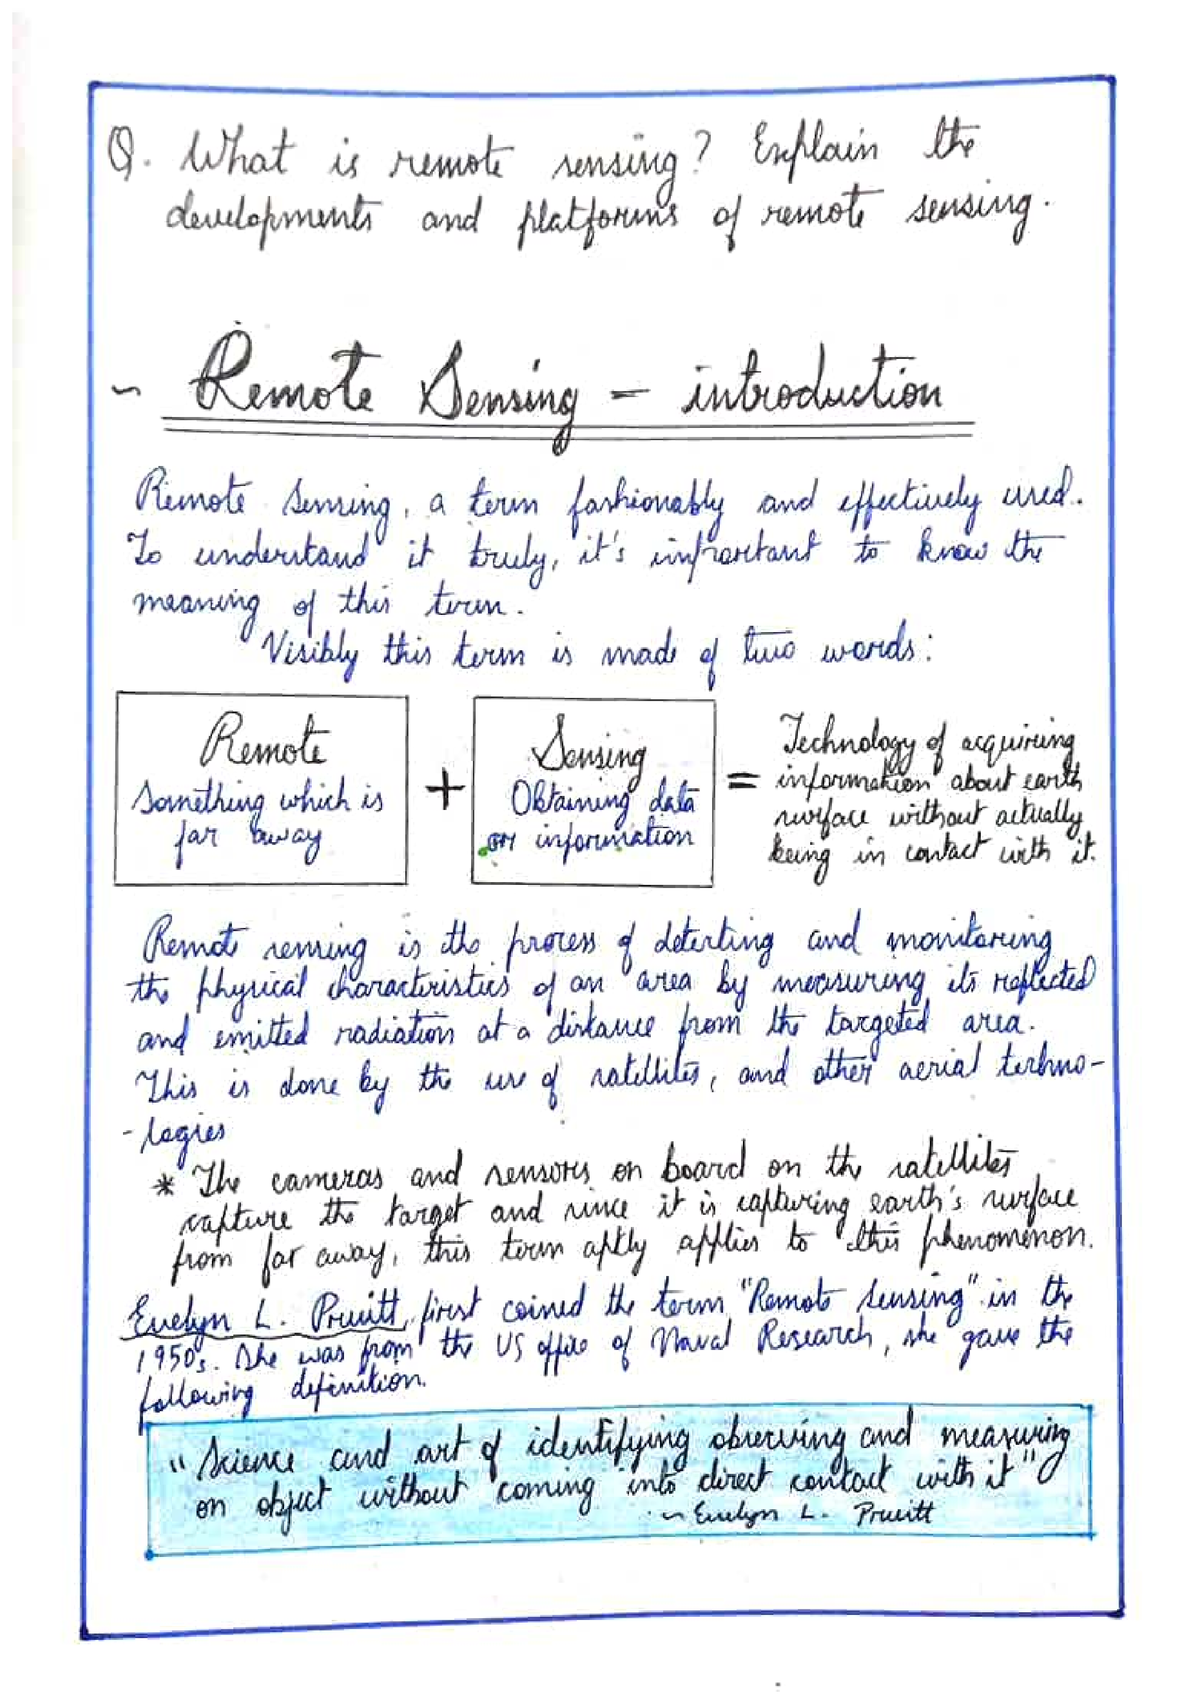 Q. What is remote sensing? Explain the
developments and platforms of remote sensing.
~ Remote Sensing – introduction
Remote Sensing, a term fashionably and effectively used.
To understand it truly, it's important to know the
meaning of this term.
Visibly this term is made of two words:
Remote
Something which is
far away
+
Sensing
Obtaining data
or information
=
Technology of acquiring
information about earth
surface without actually
being in contact with it.
Remote sensing is the process of detecting and monitoring
the physical characteristics of an area by measuring its reflected
and emitted radiation at a distance from the targeted area.
This is done by the use of satellites, and other aerial techno-
-logies
* The cameras and sensors on board on the satellites
capture the target and since it is capturing earth's surface
from far away, this term aptly applies to this phenomenon.
Evelyn L. Pruitt, first coined the term "Remote Sensing" in the
1950s. She was from the US office of Naval Research, she gave the
following definition.
"Science and art of identifying observing and measuring
an object without coming into direct contact with it"
~ Evelyn L. Pruitt